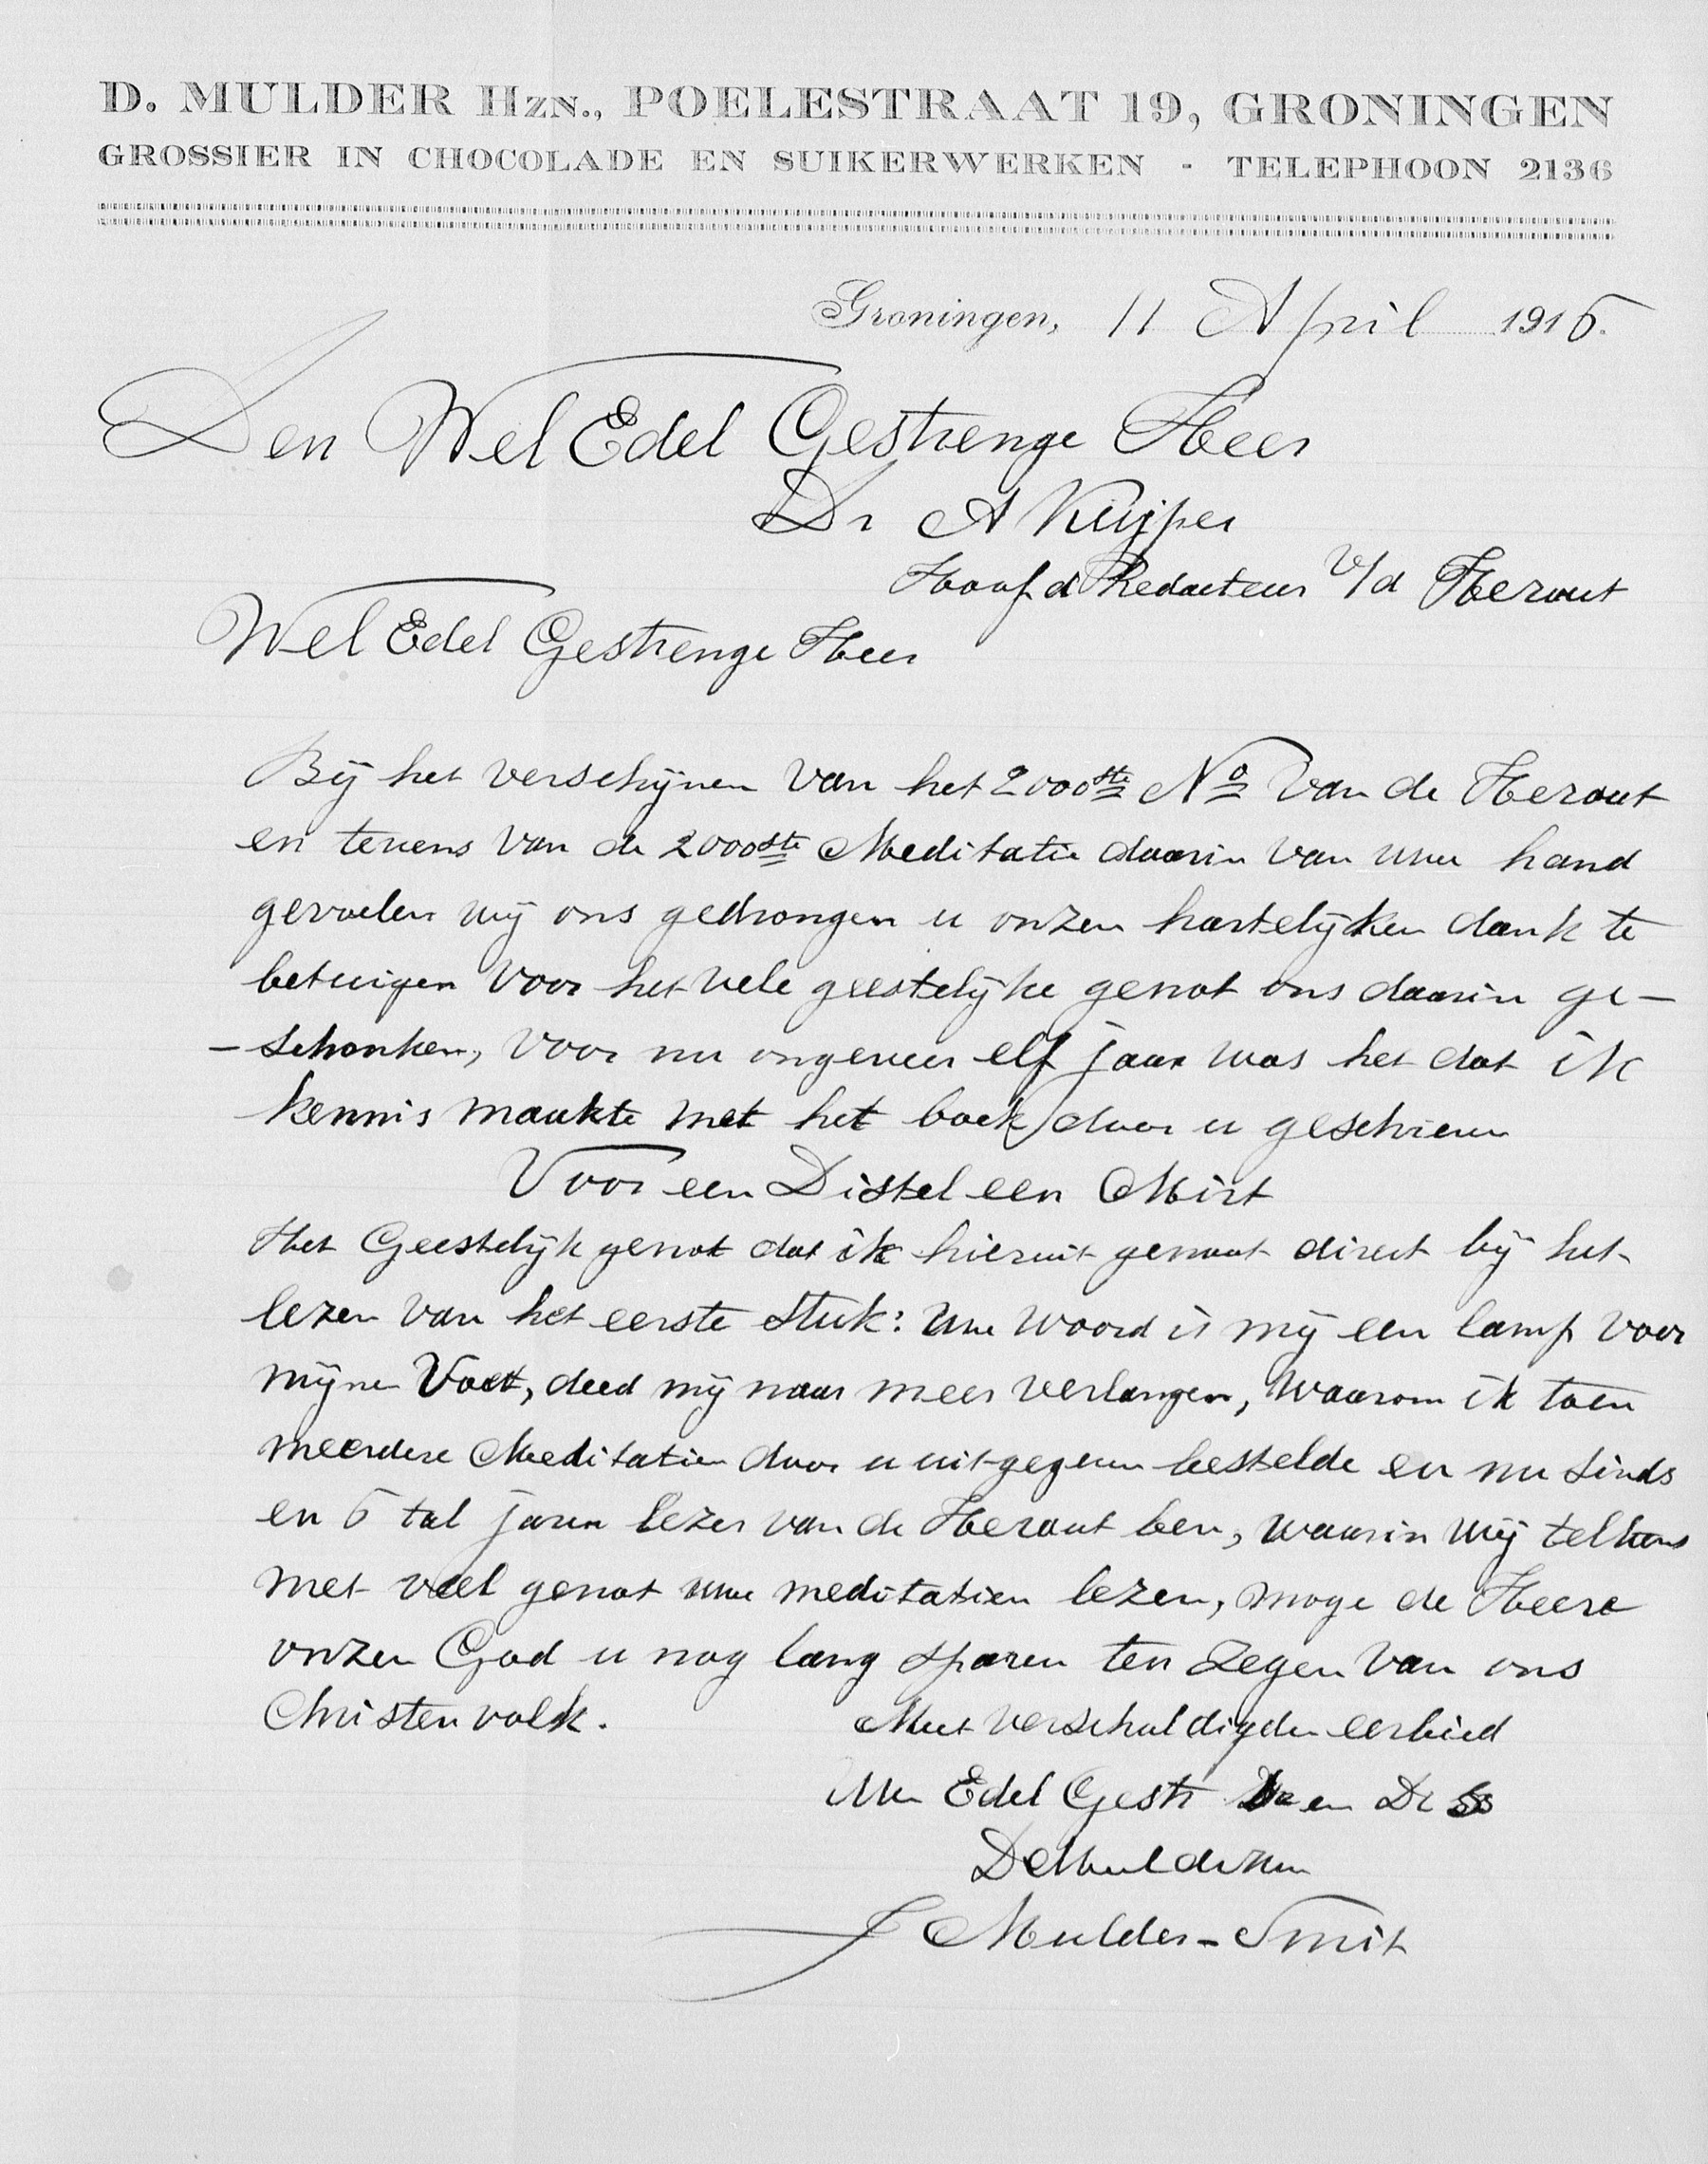 D. MULDER HZN., POELESTRAAT 19, GRONINGEN
GROSSIER IN CHOCOLADE EN SUIKERWERKEN - TELEPHOON 2136
Groningen, 11 April 1916.
Den Wel Edel Gestrenge Heer
Dr A Kuijper
Hoofd Redacteur v/d Heraut
Wel Edel Gestrenge Heer
Bij het verschijnen van het 2000ste No van de Heraut
en tevens van de 2000ste Meditatie daarin van uwe hand
gevoelen wij ons gedrongen u onzen hartelijken dank te
betuigen voor het vele geestelijke genot ons daarin ge-
-schonken, voor nu ongeveer elf jaar was het dat ik
kennis maakte met het boek door u geschreven
Voor een Distel een Mirt
Het Geestelijk genot dat ik hieruit genoot direct bij het
lezen van het eerste stuk: Uw woord is mij een lamp voor
mijne Voet, deed mij naar meer verlangen, waarom ik toen
meerdere Meditatien door u uitgegeven bestelde en nu sinds
en 6 tal jaren lezer van de Heraut ben, waarin wij telkens
met veel genot uwe meditatien lezen, moge de Heere
onzen God u nog lang sparen ten zegen van ons
Christenvolk.
Met verschuldigden eerbied
Uw Edel Gestr en
D Mulder Hzn
Mulder-Smit